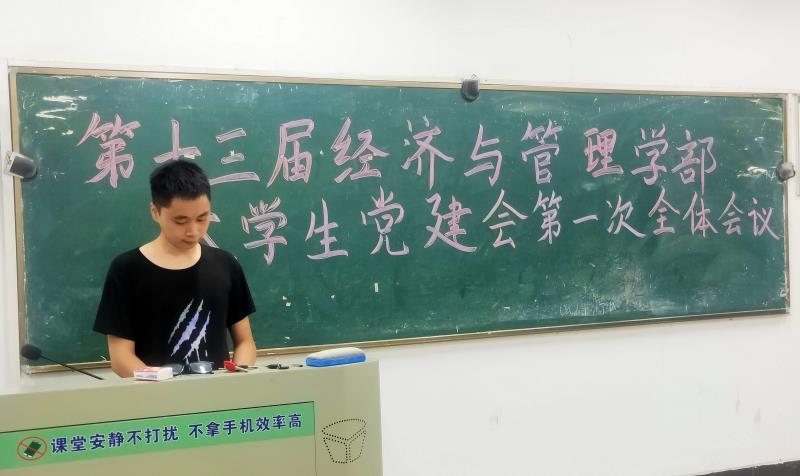 第十三届经济与管理学部
大学生党建会第一次全体会议
课堂安静不打扰 不拿手机效率高